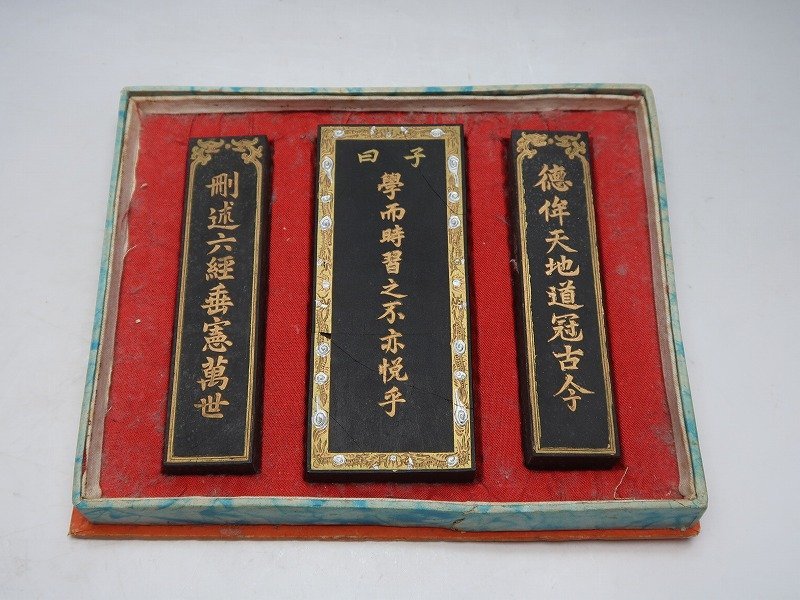 德侔天地道冠古今
子曰
學而時習之不亦悅乎
刪述六經垂憲萬世